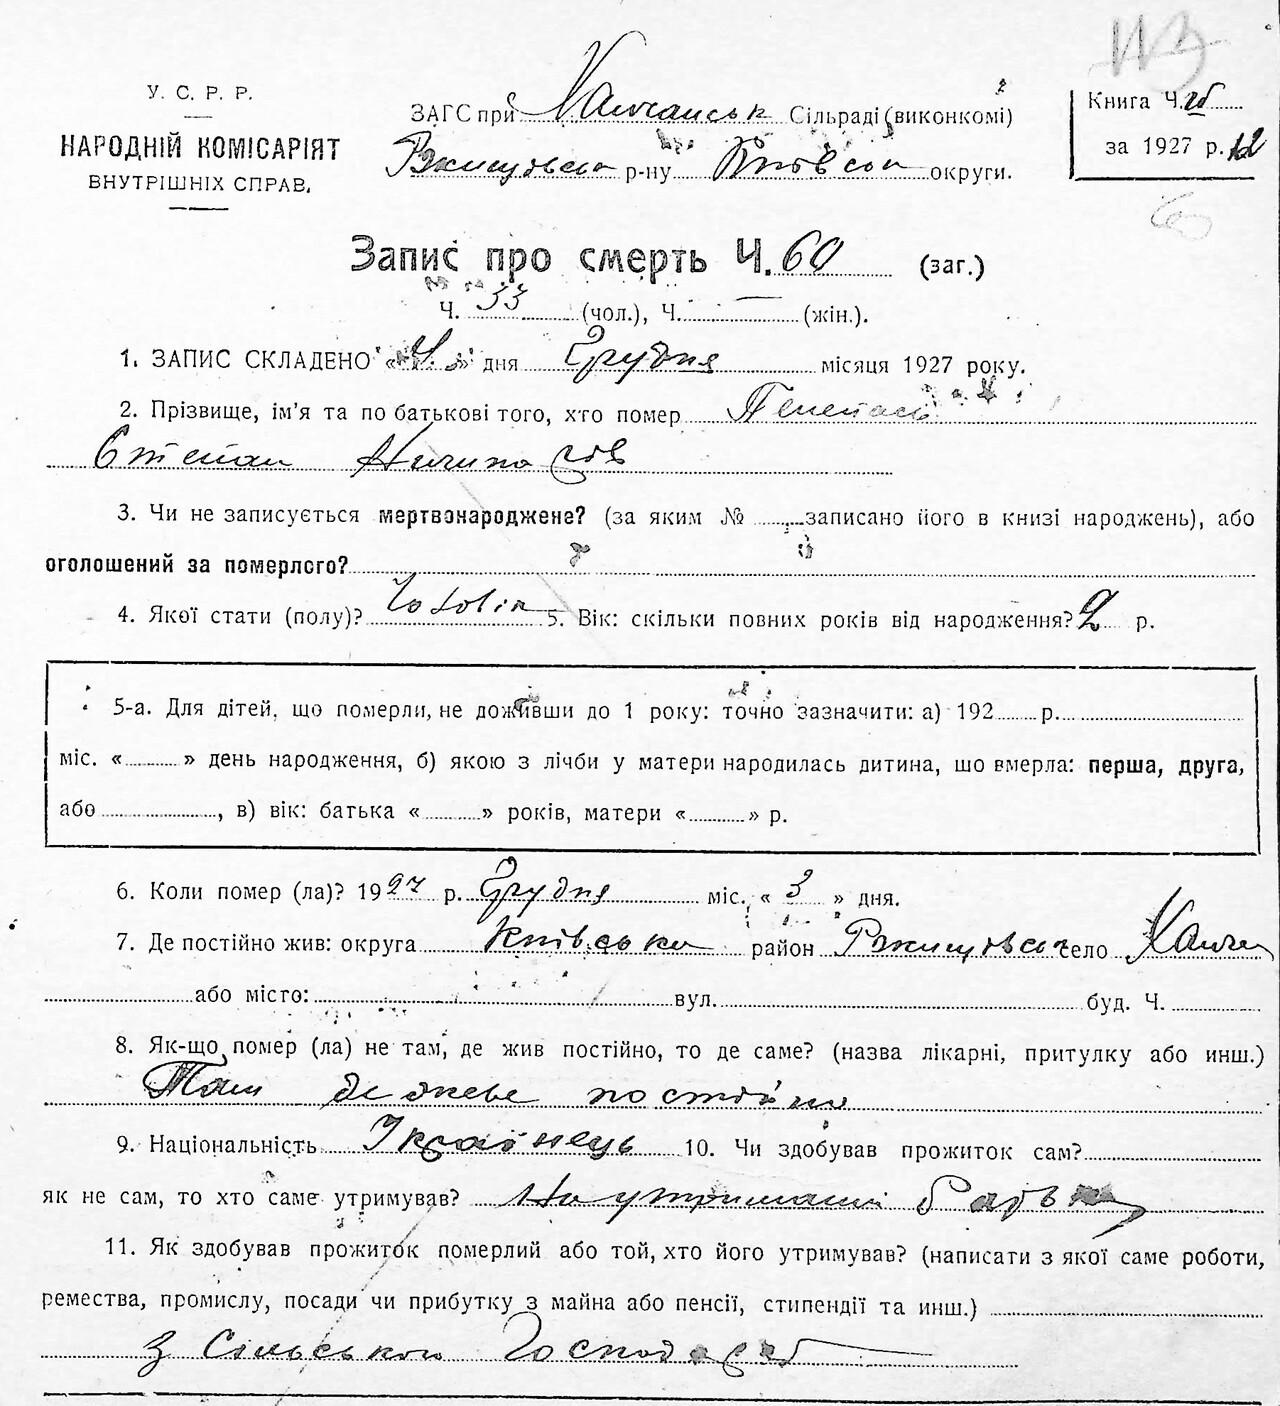 113
У. С. Р. Р.
НАРОДНІЙ КОМІСАРІЯТ
ВНУТРІШНІХ СПРАВ.
ЗАГС при Сільраді (виконкомі)
р-ну округи.
Книга Ч.
за 1927 р. 12
Запис про смерть Ч. 60 (заг.)
Ч. 33 (чол.), Ч. — (жін.).
1. ЗАПИС СКЛАДЕНО «4» дня Грудня місяця 1927 року.
2. Прізвище, ім'я та по батькові того, хто помер
Степан
3. Чи не записується мертвонароджене? (за яким № записано його в книзі народжень), або
оголошений за померлого?
4. Якої стати (полу)? 5. Вік: скільки повних років від народження? 2 р.
5-а. Для дітей, що померли, не доживши до 1 року: точно зазначити: а) 192 р.
міс. « » день народження, б) якою з лічби у матери народилась дитина, що вмерла: перша, друга,
або , в) вік: батька « » років, матери « » р.
6. Коли помер (ла)? 1927 р. Грудня міс. « 3 » дня.
7. Де постійно жив: округа Київська район село
або місто: вул. буд. Ч.
8. Як-що помер (ла) не там, де жив постійно, то де саме? (назва лікарні, притулку або инш.)
Там де живе постійно
9. Національність Українець 10. Чи здобував прожиток сам?
як не сам, то хто саме утримував? На утриманні
11. Як здобував прожиток померлий або той, хто його утримував? (написати з якої саме роботи,
ремества, промислу, посади чи прибутку з майна або пенсії, стипендії та инш.)
з Сільського Господар